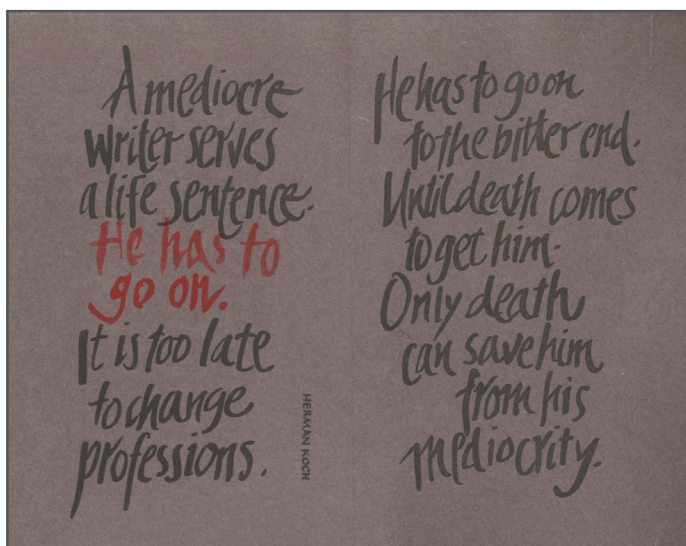 A mediocre
writer serves
a life sentence.
He has to
go on.
It is too late
to change
professions.
HERMAN KOCH
He has to go on
to the bitter end.
Until death comes
to get him.
Only death
can save him
from his
mediocrity.